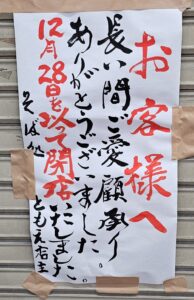 お客様へ
長い間ご愛顧承り
ありがとうございました。
12月28日を以って閉店
いたしました
そば処
ともえ店主